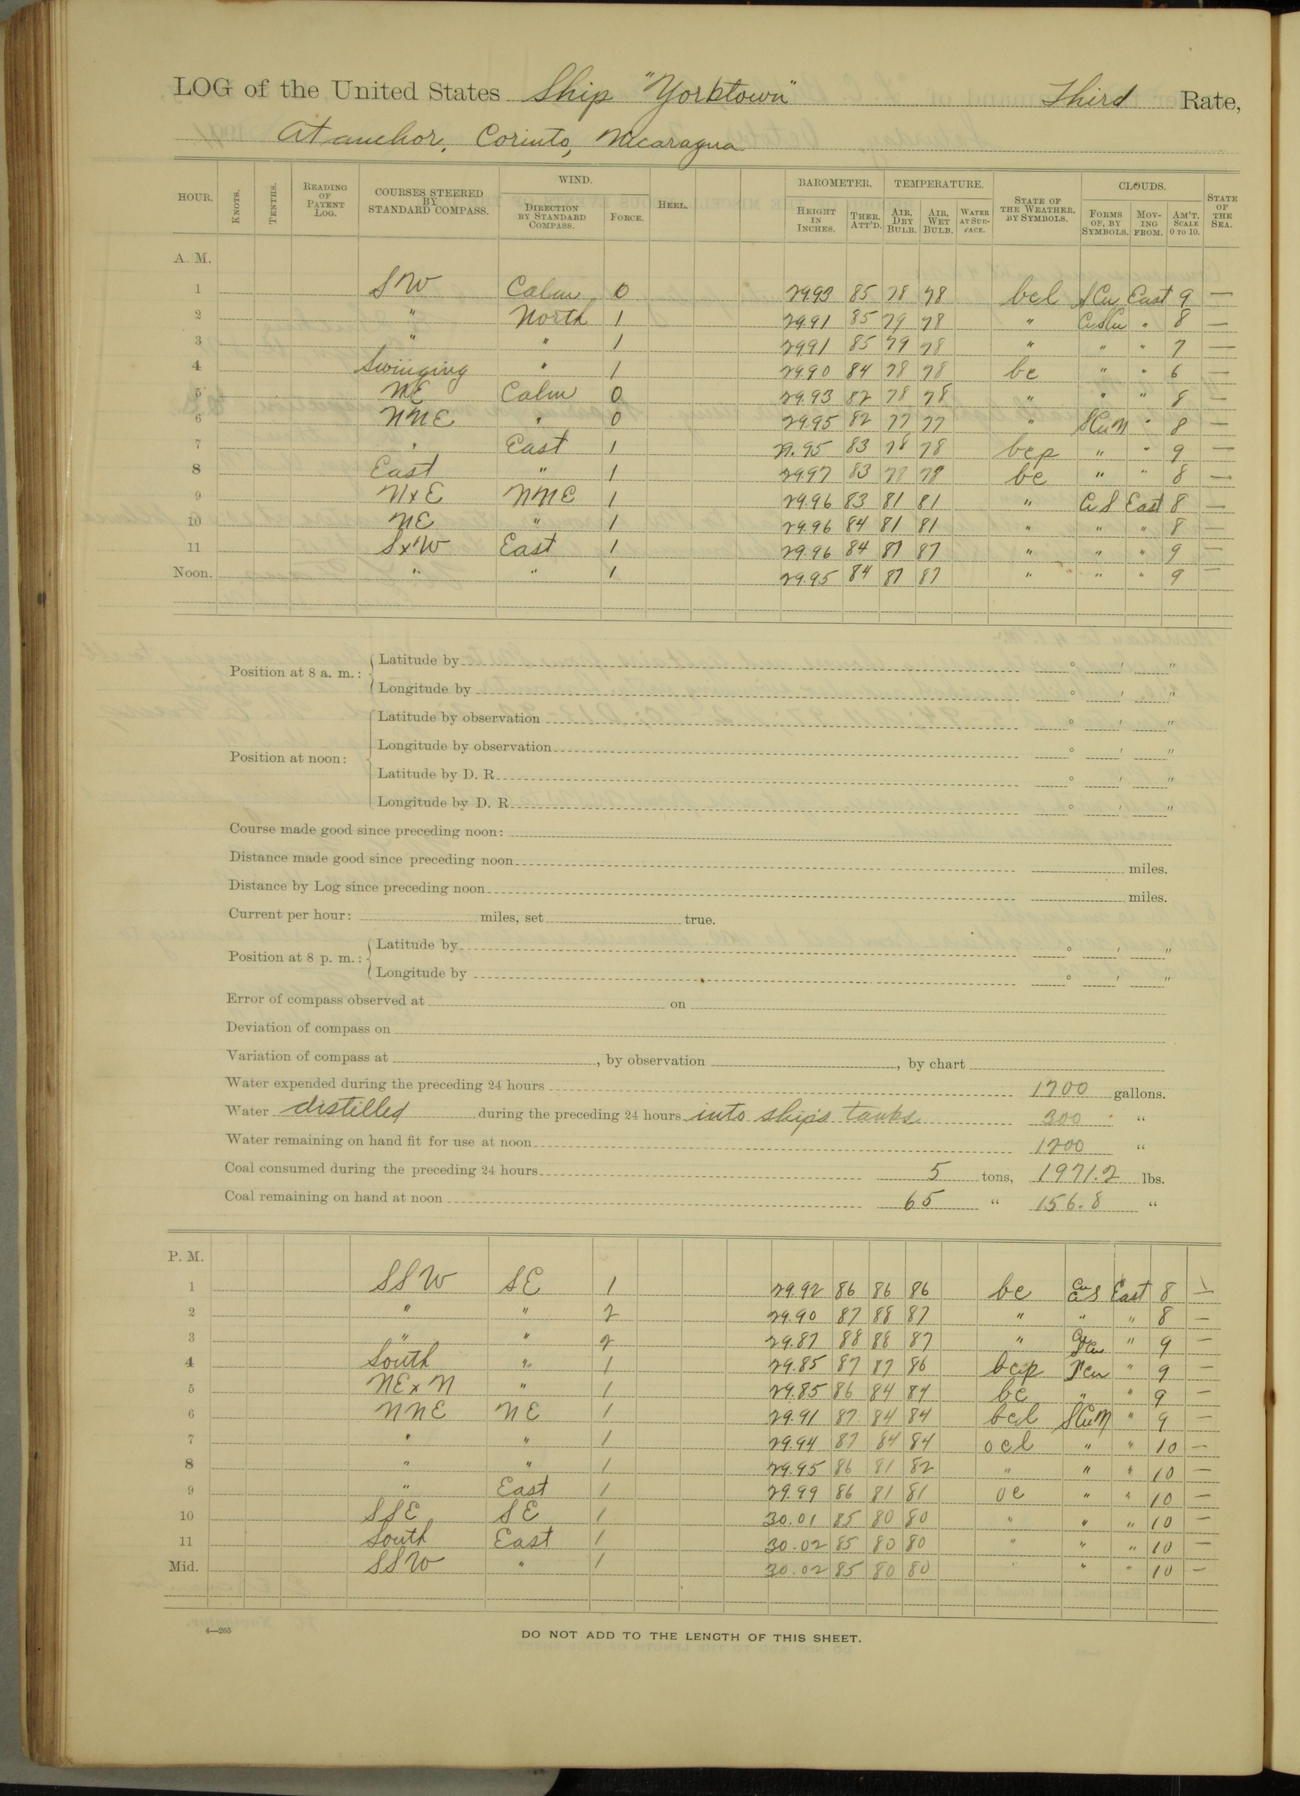 LOG of the United States Ship "Yorktown" Third Rate,
At anchor, Corinto, Nicaragua
HOUR. KNOTS. TENTHS. READING OF PATENT LOG. COURSES STEERED BY STANDARD COMPASS. WIND. DIRECTION BY STANDARD COMPASS. FORCE. HEEL. BAROMETER. HEIGHT IN INCHES. THER. ATT'D. TEMPERATURE. AIR, DRY BULB. AIR, WET BULB. WATER AT SURFACE. STATE OF THE WEATHER, BY SYMBOLS. CLOUDS. FORMS OF, BY SYMBOLS. MOVING FROM. AM'T. SCALE 0 TO 10. STATE OF THE SEA.
A. M.
1 SW Calm 0 29.93 85 78 78 bcl SCu East 9 —
2 " North 1 29.91 85 79 78 " CuSCu " 8 —
3 " " 1 29.91 85 79 78 " " " 7 —
4 Swinging " 1 29.90 84 78 78 bc " " 6 —
5 NE Calm 0 29.93 82 78 78 " " " 8 —
6 NNE " 0 29.95 82 77 77 " SCuN " 8 —
7 " East 1 29.95 83 78 78 bcp " " 9 —
8 East " 1 29.97 83 78 78 bc " " 8 —
9 NxE NNE 1 29.96 83 81 81 " CuS East 8 —
10 NE " 1 29.96 84 81 81 " " " 8 —
11 SxW East 1 29.96 84 87 87 " " " 9 —
Noon. " " 1 29.95 84 87 87 " " " 9 —
Position at 8 a. m.: Latitude by ° ' "
Longitude by ° ' "
Position at noon: Latitude by observation ° ' "
Longitude by observation ° ' "
Latitude by D. R. ° ' "
Longitude by D. R. ° ' "
Course made good since preceding noon:
Distance made good since preceding noon miles.
Distance by Log since preceding noon miles.
Current per hour: miles, set true.
Position at 8 p. m.: Latitude by ° ' "
Longitude by ° ' "
Error of compass observed at on
Deviation of compass on
Variation of compass at , by observation , by chart
Water expended during the preceding 24 hours 1700 gallons.
Water distilled during the preceding 24 hours into ship's tanks 300 "
Water remaining on hand fit for use at noon 1200 "
Coal consumed during the preceding 24 hours 5 tons, 1971.2 lbs.
Coal remaining on hand at noon 65 " 156.8 "
P. M.
1 SSW SE 1 29.92 86 86 86 bc East 8
2 " " 2 29.90 87 88 87 " " " 8 —
3 " " 2 29.87 88 88 87 " " 9 —
4 South " 1 29.85 87 87 86 bcp " 9 —
5 NExN " 1 29.85 86 84 84 bc " " 9 —
6 NNE NE 1 29.91 87 84 84 bcl SCuN " 9 —
7 " " 1 29.94 87 84 84 ocl " " 10 —
8 " " 1 29.95 86 81 82 " " " 10 —
9 " East 1 29.99 86 81 81 oc " " 10 —
10 SSE SE 1 30.01 85 80 80 " " " 10 —
11 South East 1 30.02 85 80 80 " " " 10 —
Mid. SSW " 1 30.02 85 80 80 " " " 10 —
4—265
DO NOT ADD TO THE LENGTH OF THIS SHEET.